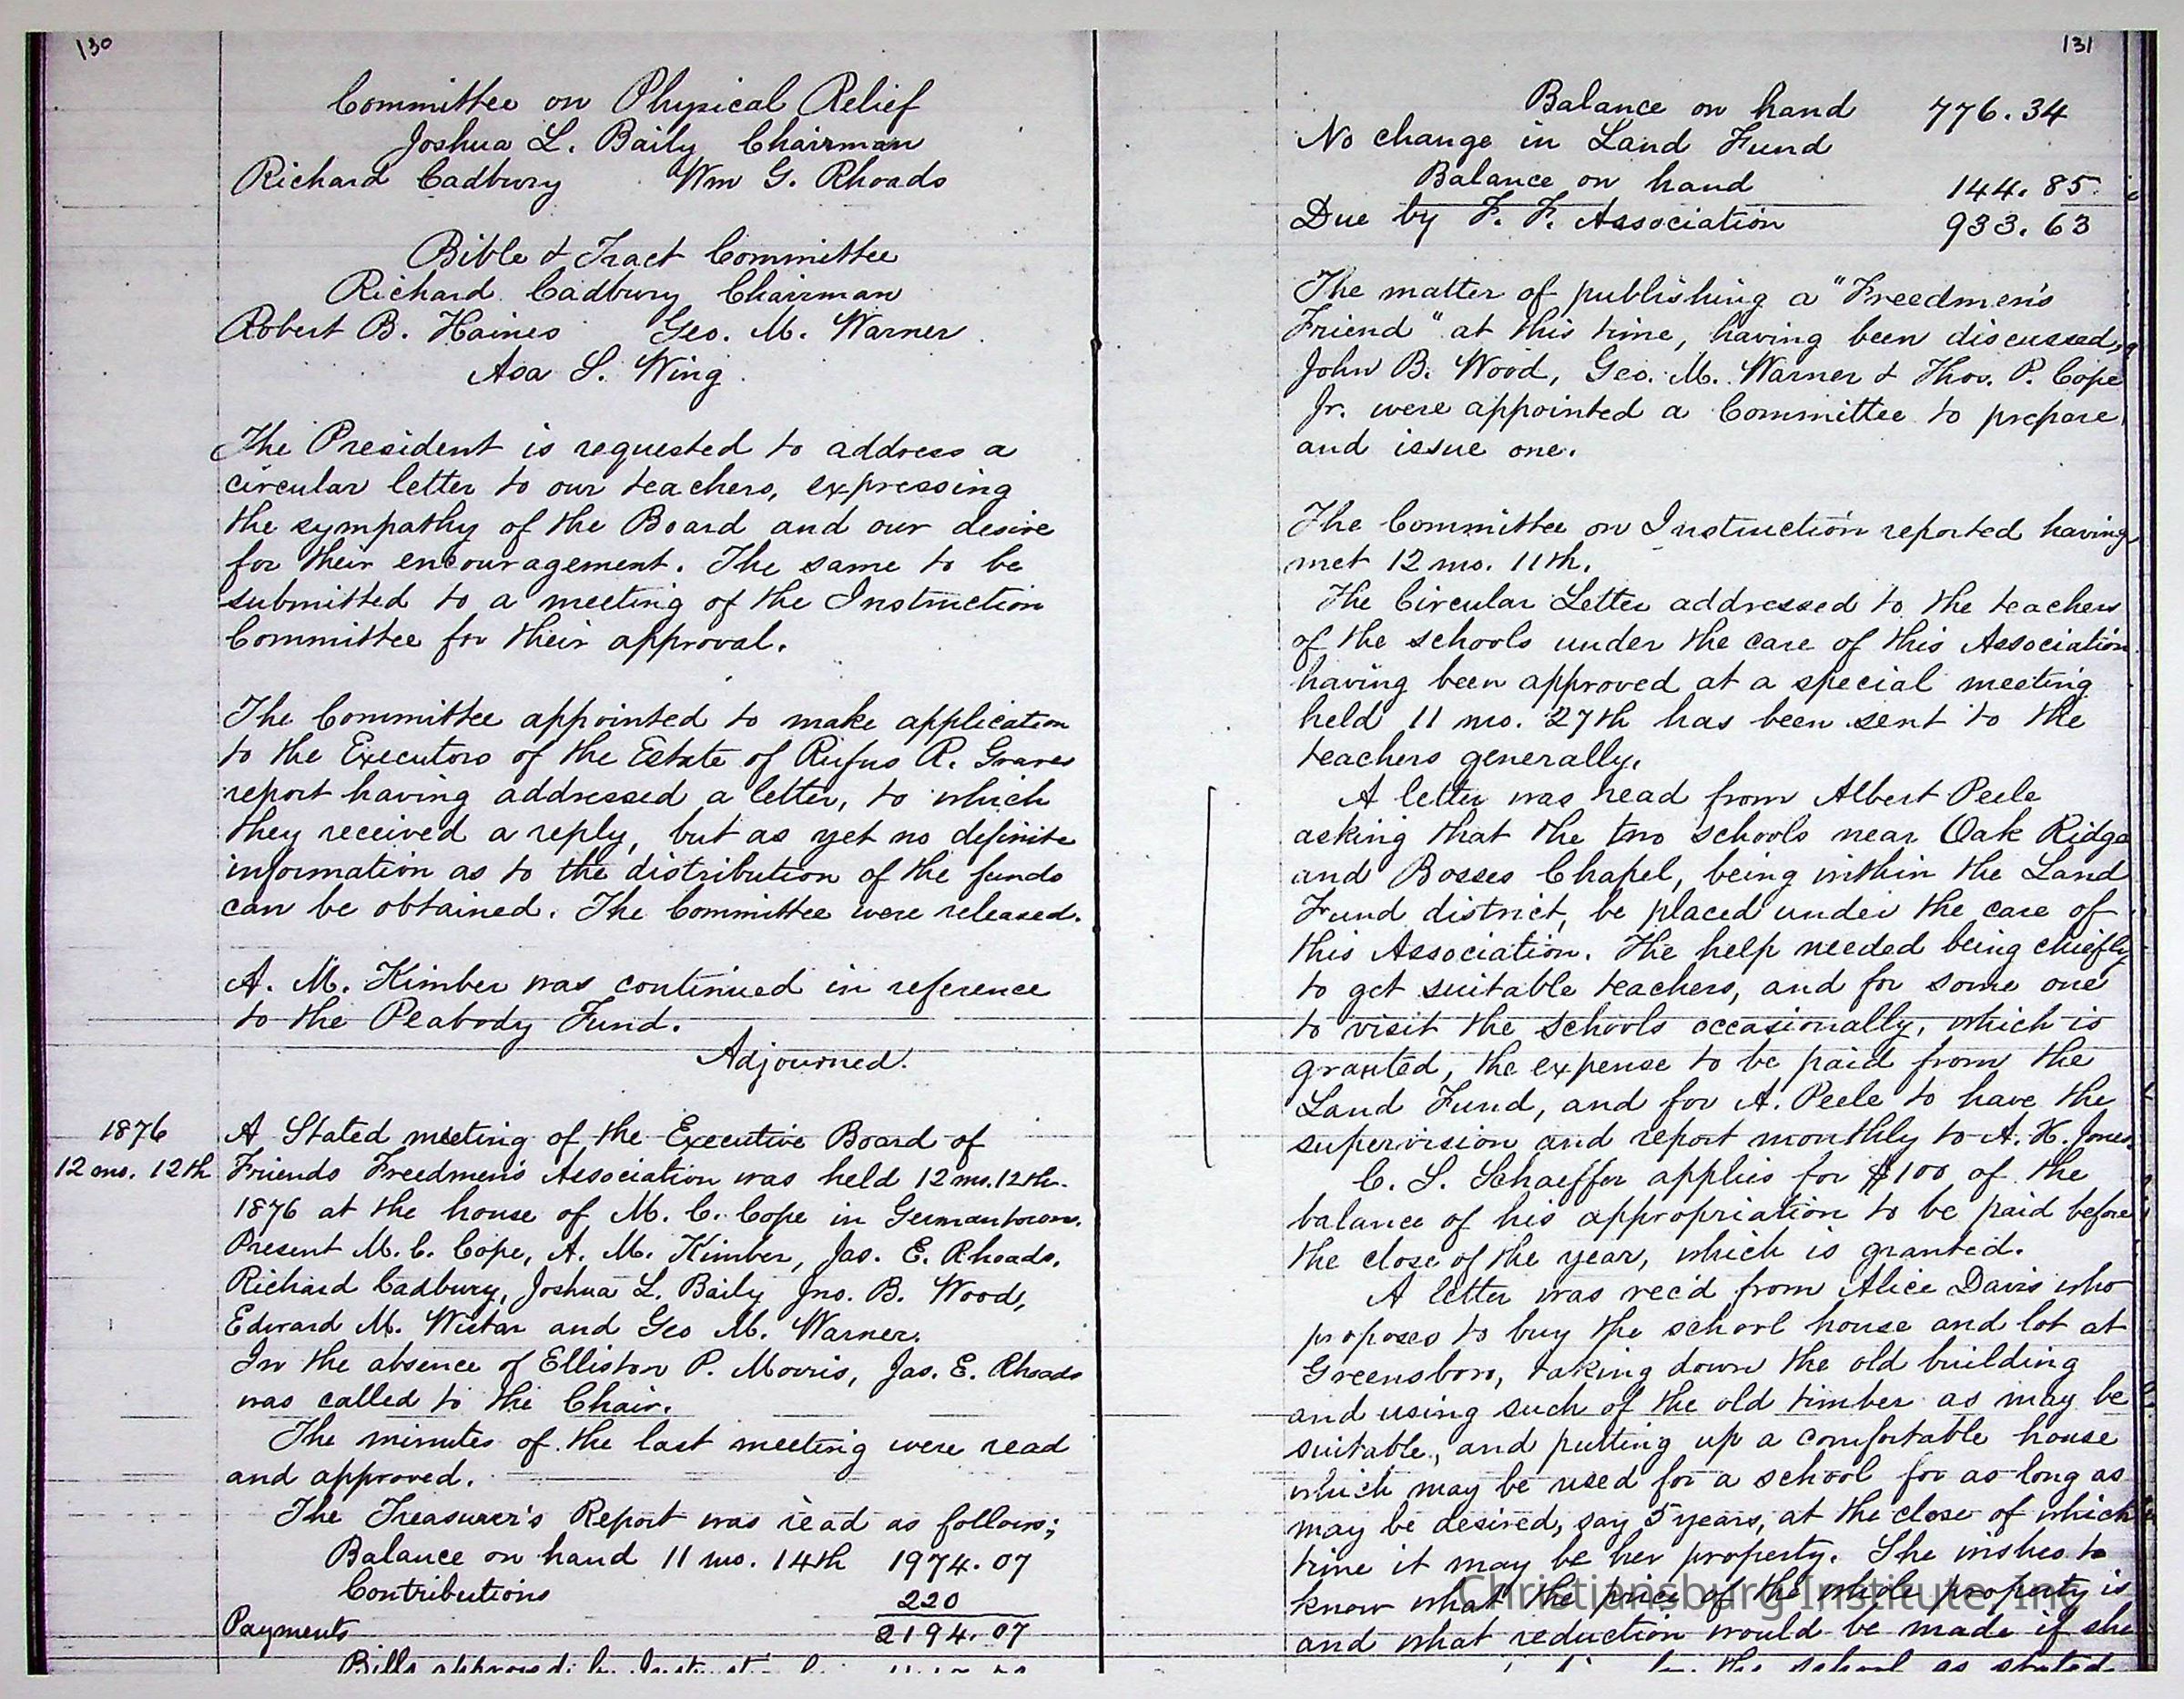 130
Committee on Physical Relief
Joshua L. Baily Chairman
Richard Cadbury Wm G. Rhoads
Bible & Tract Committee
Richard Cadbury Chairman
Robert B. Haines Geo. M. Warner
Asa S. Wing
The President is requested to address a
circular letter to our teachers, expressing
the sympathy of the Board and our desire
for their encouragement. The same to be
submitted to a meeting of the Instruction
Committee for their approval.
The Committee appointed to make application
to the Executors of the Estate of Rufus R. Graves
report having addressed a letter, to which
they received a reply, but as yet no definite
information as to the distribution of the funds
can be obtained. The Committee were released.
A. M. Kimber was continued in reference
to the Peabody Fund.
Adjourned.
1876
12 mo. 12th
A Stated meeting of the Executive Board of
Friends Freedmen's Association was held 12 mo. 12th.
1876 at the house of M. C. Cope in Germantown.
Present M. C. Cope, A. M. Kimber, Jas. E. Rhoads,
Richard Cadbury, Joshua L. Baily Jno. B. Wood,
Edward M. Wistar and Geo M. Warner.
In the absence of Elliston P. Morris, Jas. E. Rhoads
was called to the Chair.
The minutes of the last meeting were read
and approved.
The Treasurer's Report was read as follows;
Balance on hand 11 mo. 14th 1974.07
Contributions 220
Payments 2194.07
Bills approved by
131
Balance on hand 776.34
No change in Land Fund
Balance on hand 144.85
Due by F. F. Association 933.63
The matter of publishing a "Freedmen's
Friend" at this time, having been discussed,
John B. Wood, Geo. M. Warner & Thos. P. Cope
Jr. were appointed a Committee to prepare
and issue one.
The Committee on Instruction reported having
met 12 mo. 11th.
The Circular Letter addressed to the teachers
of the schools under the care of this Association
having been approved at a special meeting
held 11 mo. 27th has been sent to the
teachers generally.
A letter was read from Albert Peele
asking that the two schools near Oak Ridge
and Bosses Chapel, being within the Land
Fund district, be placed under the care of
this Association. The help needed being chiefly
to get suitable teachers, and for some one
to visit the schools occasionally, which is
granted, the expense to be paid from the
Land Fund, and for A. Peele to have the
supervision and report monthly to A. H. Jones.
C. S. Schaeffer applies for $100 of the
balance of his appropriation to be paid before
the close of the year, which is granted.
A letter was rec'd from Alice Davis who
proposes to buy the school house and lot at
Greensboro, taking down the old building
and using such of the old timber as may be
suitable, and putting up a comfortable house
which may be used for a school for as long as
may be desired, say 5 years, at the close of which
time it may be her property. She wishes to
know what the price of the whole property is
and what reduction would be made if she
the school as stated
Christiansburg Institute, Inc